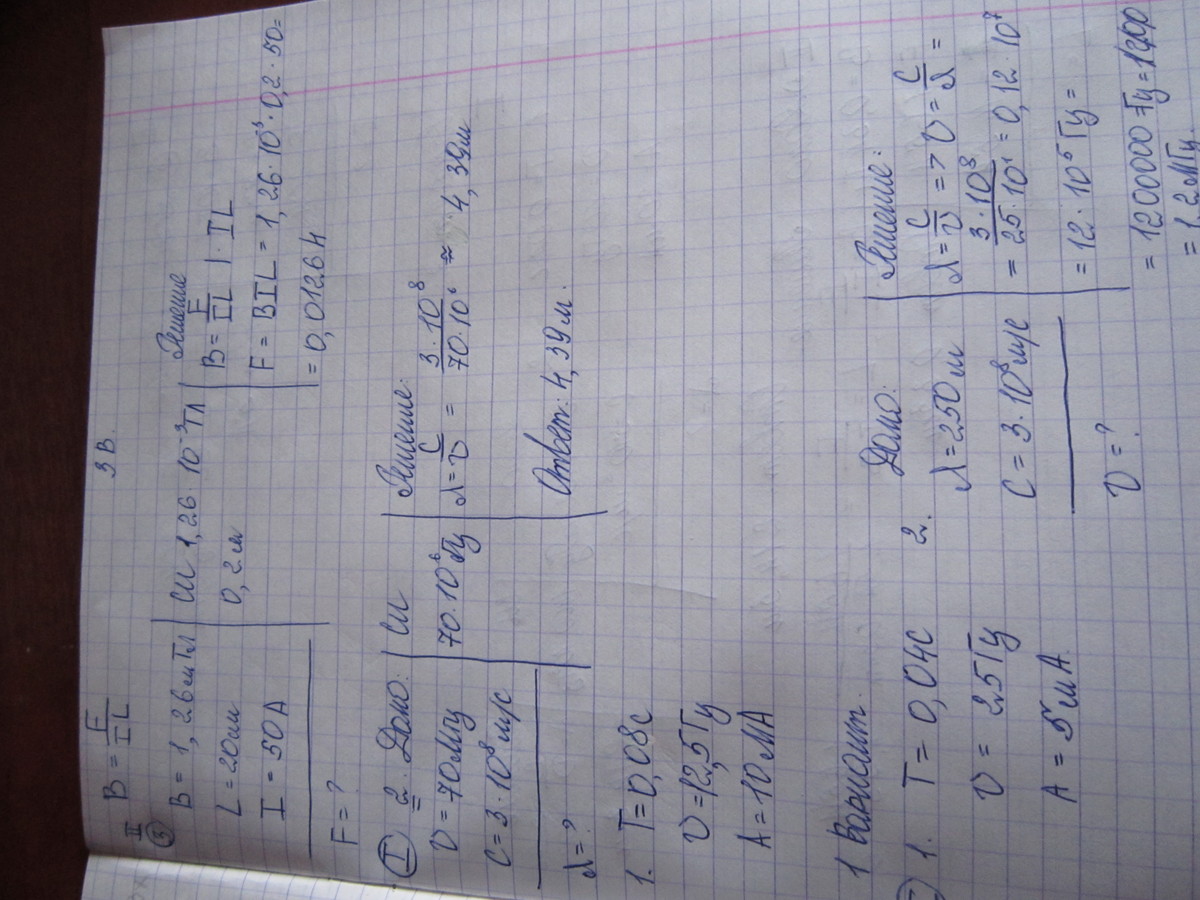 3 В.
II B = F/IL
③
B = 1,26мТл | СИ 1,26 10⁻³Тл | Решение
L = 20см 0,2м B = F/IL | · IL
I = 50А F = BIL = 1,26·10⁻³·0,2·50=
= 0,0126Н
F = ?
Ⓘ 2. Дано: | СИ | Решение:
ν = 70МГц 70·10⁶Гц λ = c/ν = 3·10⁸/70·10⁶ ≈ 4,39м
c = 3·10⁸м/с
λ = ? Ответ: 4,39м.
1. T = 0,08с
ν = 12,5Гц
A = 10мА
1 Вариант.
1. T = 0,04с
ν = 25Гц
A = 5мА
2. Дано: | Решение:
λ = 250м λ = c/ν => ν = c/λ =
c = 3·10⁸м/с = 3·10⁸/25·10¹ = 0,12·10⁷
= 12·10⁵Гц =
ν = ? = 1200000 Гц = 1200
= 1,2МГц